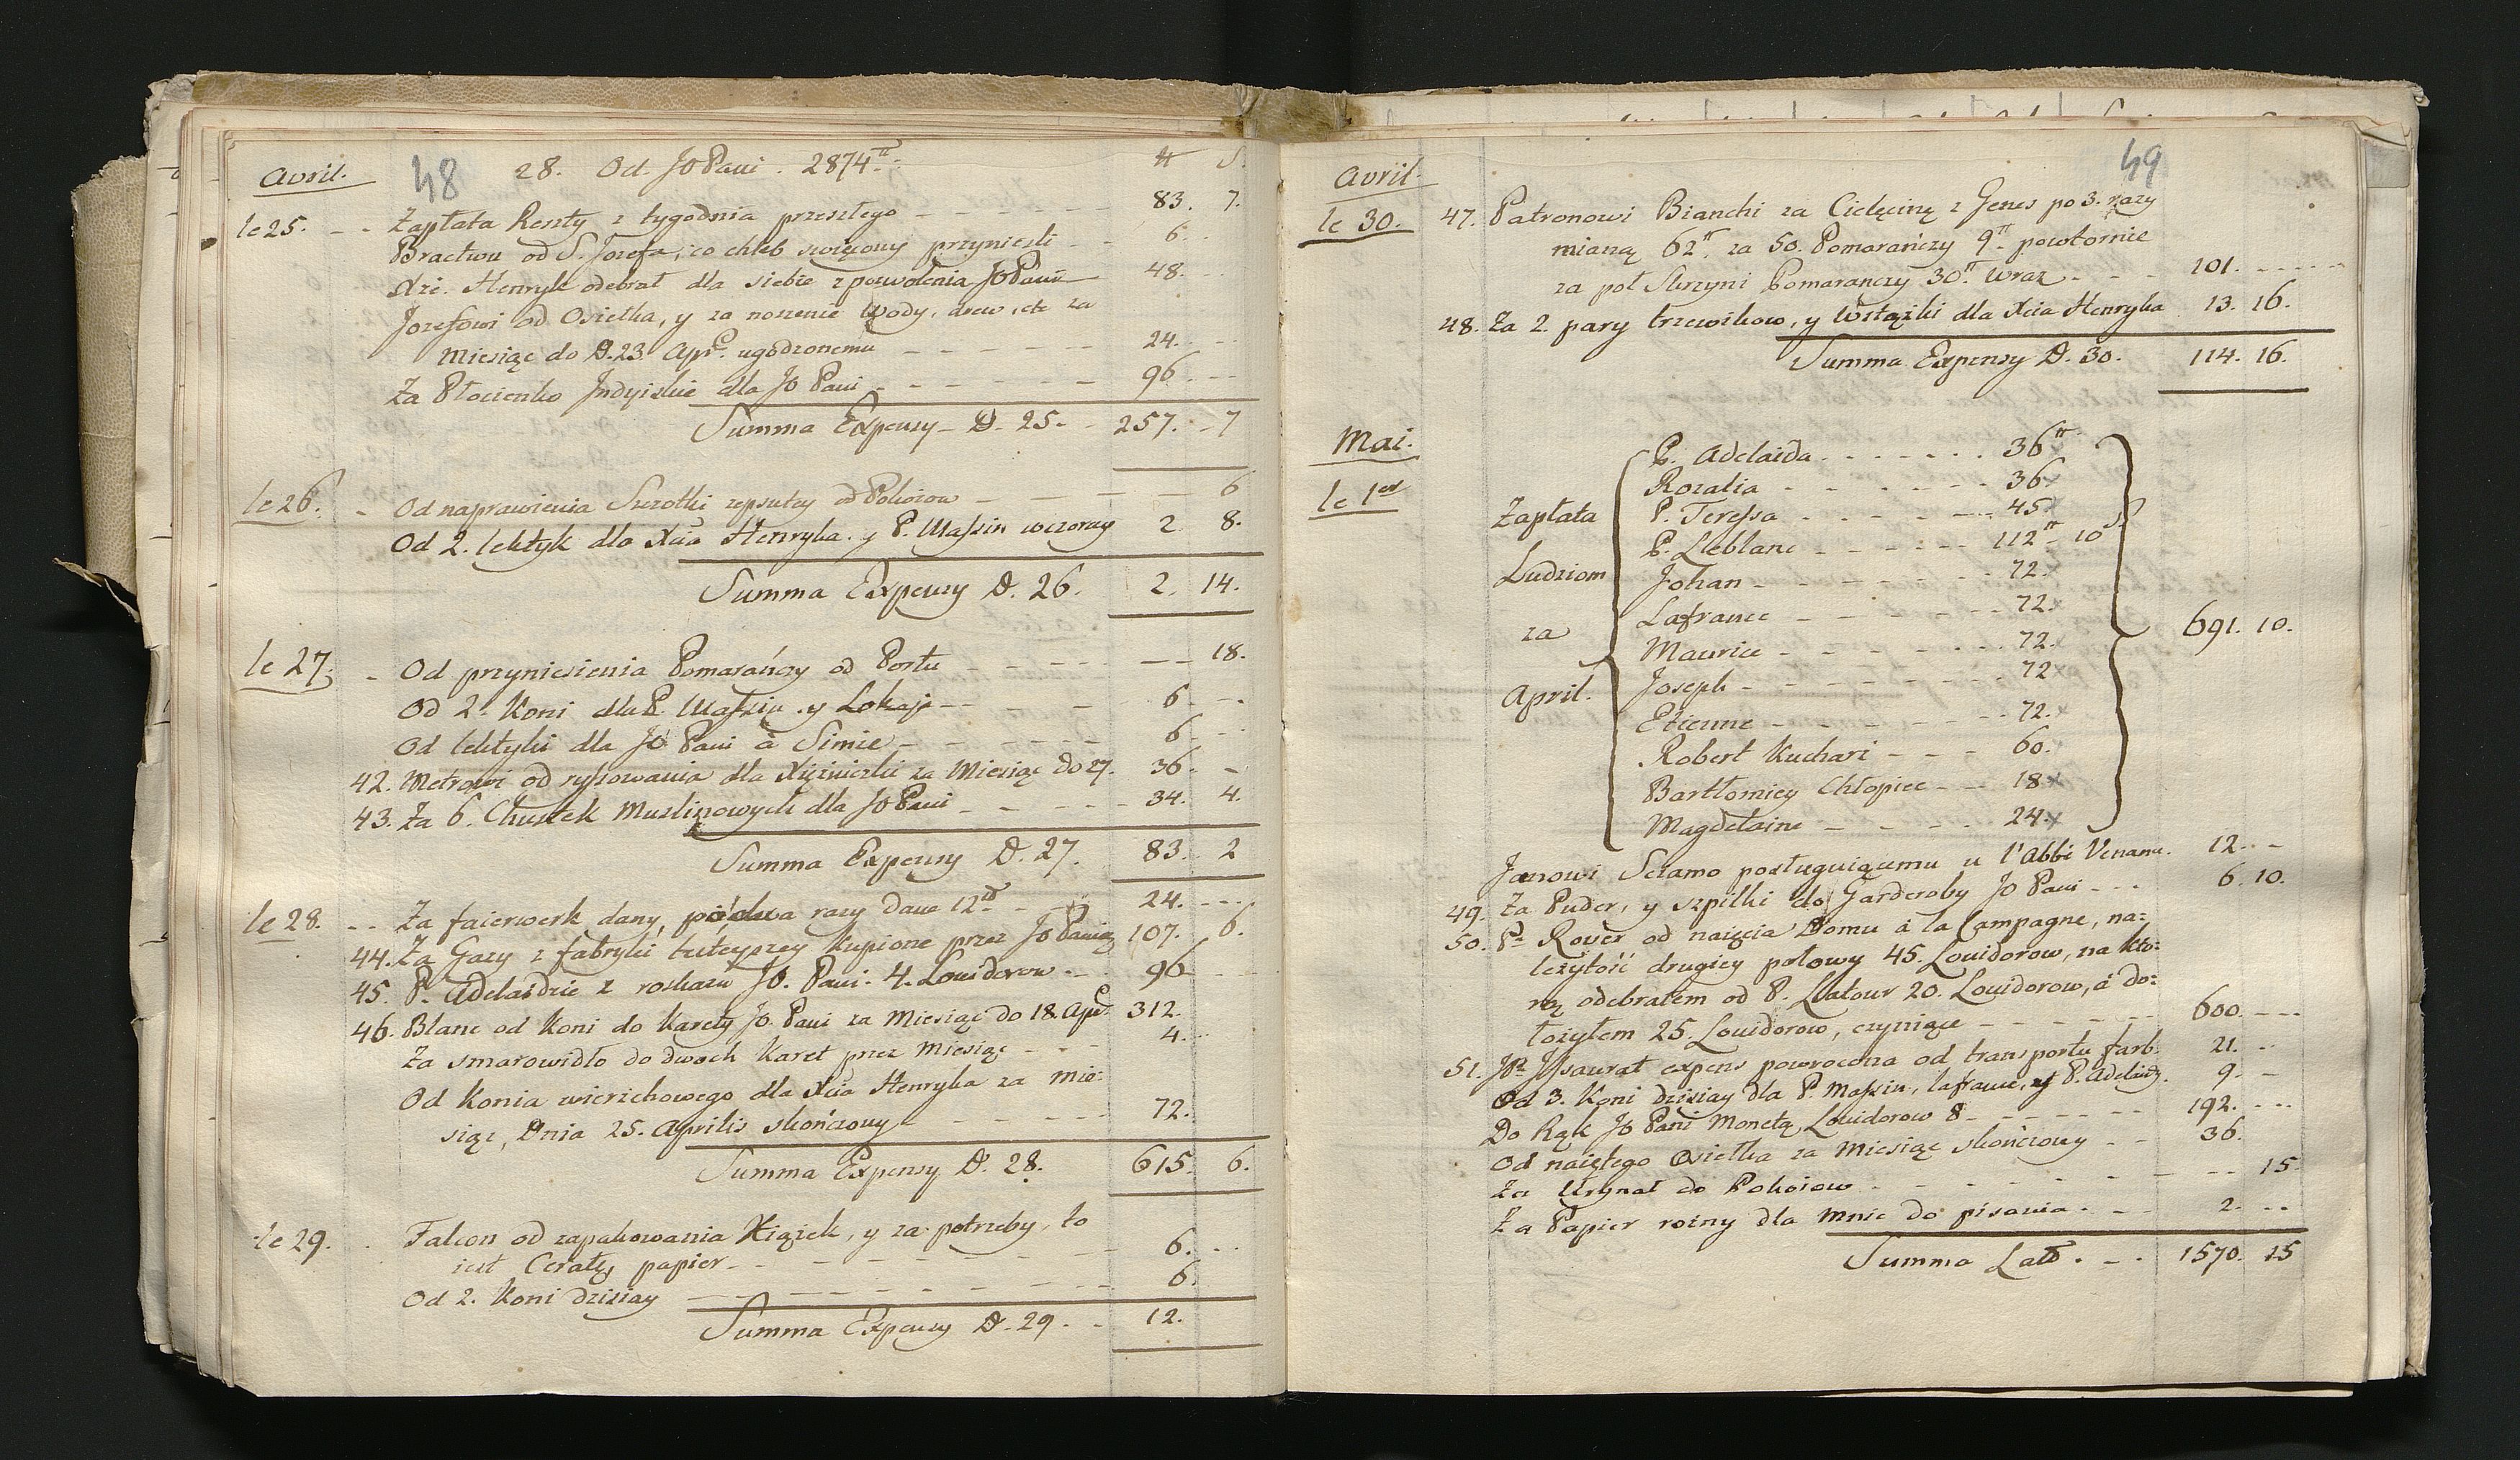 Avril. 48 28. Od JO Pani. 2874.tt
tt S.
le 25. Zapłata Reszty z tygodnia przeszłego 83. 7.
Bractwu od S. Jozefa, co chleb swięcony przyniesli 6.
Xże. Henryk odebrał dla siebie z pozwolenia JO Pani 48.
Jozefowi od Osiełka, y za noszenie Wody, drew, etc za
Miesiąc do D. 23. Apr. ugodzonemu 24.
Za Płocienko Indyiskie dla JO Pani 96
Summa Expensy D. 25. 257. 7
le 26. Od naprawienia Szrotki zepsutey od Pokoiow 6
Od 2. lektyk dla Xcia Henryka. y P. Maſsin wczoray 2 8.
Summa Expensy D. 26. 2. 14.
le 27. Od przyniesienia Pomarańczy od Portu 18.
Od 2. Koni dla P. Maſsin. y Lokaja 6
Od lektyki dla JO Pani à Simie 6.
42. Metrowi od ryſsowania dla Xiężniczki za Miesiąc do 27. 36.
43. Za 6. Chustek Muslinowych dla JO Pani 34. 4.
Summa Expensy D. 27. 83. 2
le 28. Za faierwerk dany, po dwa razy dane 12.tt 24.
44. Za Gazy z fabryki tuteyszey kupione przez JO Panią 107. 6.
45. P. Adelaidzie z roskazu JO. Pani. 4. Louidorow 96
46. Blanc od Koni do Karety JO. Pani za Miesiąc do 18. Apr. 312.
Za smarowidło do dwoch Karet przez Miesiąc 4.
Od Konia wierzchowego dla Xcia Henryka za Mie:
siąc, Dnia 25. Aprilis skończony 72.
Summa Expensy D. 28. 615. 6.
le 29. Falcon od zapakowania Xiązek, y za potrzeby, to
iest Ceratę, papier 6.
Od 2. Koni dzisiay 6.
Summa Expensy D. 29. 12.
Avril. 49
le 30. 47. Patronowi Bianchi za Cielęcinę z Genes po 3. razy
mianą 62tt. za 50. Pomarańczy 9.tt powtornie
za poł Skrzyni Pomarańczy 30.tt wraz 101.
48. Za 2. pary trzewikow, y Wstążki dla Xcia Henryka 13. 16.
Summa Expensy D. 30. 114. 16.
Mai.
le 1er
Zapłata Ludziom za April.
P. Adelaida 36tt
Rozalia 36
P. Tereſsa 45
P. Lleblanc 112tt 10S
Johan 72.
Lafrance 72.
Maurice 72.
Joseph 72
Etienne 72.
Robert Kucharz 60.
Bartłomiey Chłopiec 18
Magdelaine 24.
691. 10.
Janowi Sciamo posługuiącemu u l'Abbé 12.
49. Za Puder, y szpilki do Garderoby JO Pani 6. 10.
50. Pr. Rover od naięcia Domu à la Campagne, na:
leżytość drugiey połowy 45. Louidorow, na kto:
rą odebrałem od P. Llatour 20. Louidorow, á do:
łożyłem 25. Louidorow, czyniące 600.
51. expens powrocona od transportu farb. 21.
Od 3. Koni dzisiay dla P. Maſsin, lafrance, y P. Adelaidy. 9.
Do Rąk JO Pani Monetą, Louidorow 8 192.
Od naiętego Osiełka za Miesiąc skończony 36.
Za Urynał do Pokoiow 15.
Za Papier rożny dla Mnie do pisania. 2.
Summa Lats. 1570. 15